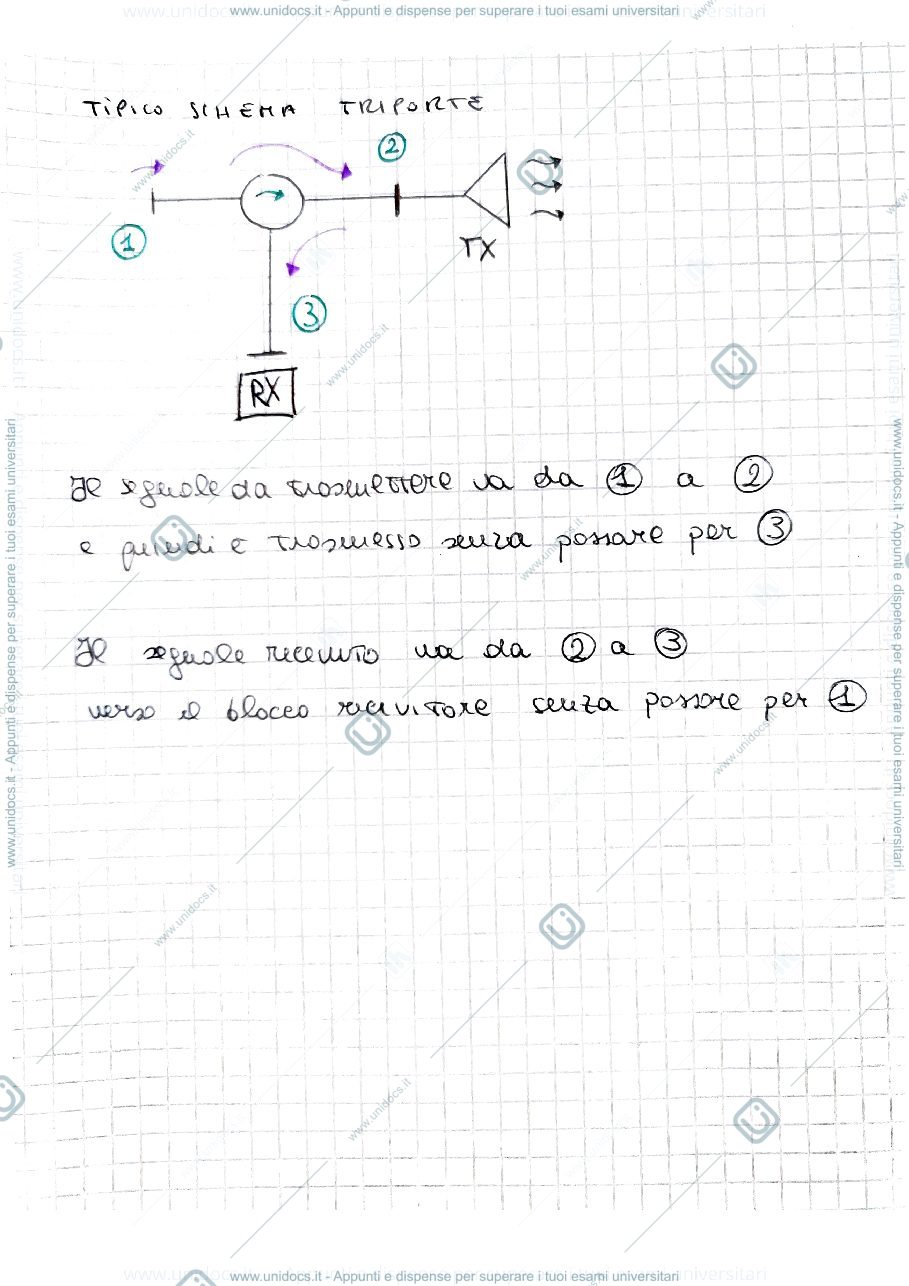 www.unidocs.it - Appunti e dispense per superare i tuoi esami universitari
TIPICO SCHEMA TRIPORTE
2
1
TX
3
RX
Il segnale da trasmettere va da 1 a 2
e quindi è trasmesso senza passare per 3
Il segnale ricevuto va da 2 a 3
verso il blocco ricevitore senza passare per 1
www.unidocs.it - Appunti e dispense per superare i tuoi esami universitari
www.unidocs.it - Appunti e dispense per superare i tuoi esami universitari
www.unidocs.it
www.unidocs.it
www.unidocs.it
www.unidocs.it
www.unidocs.it
www.unidocs.it
www.unidocs.it - Appunti e dispense per superare i tuoi esami universitari